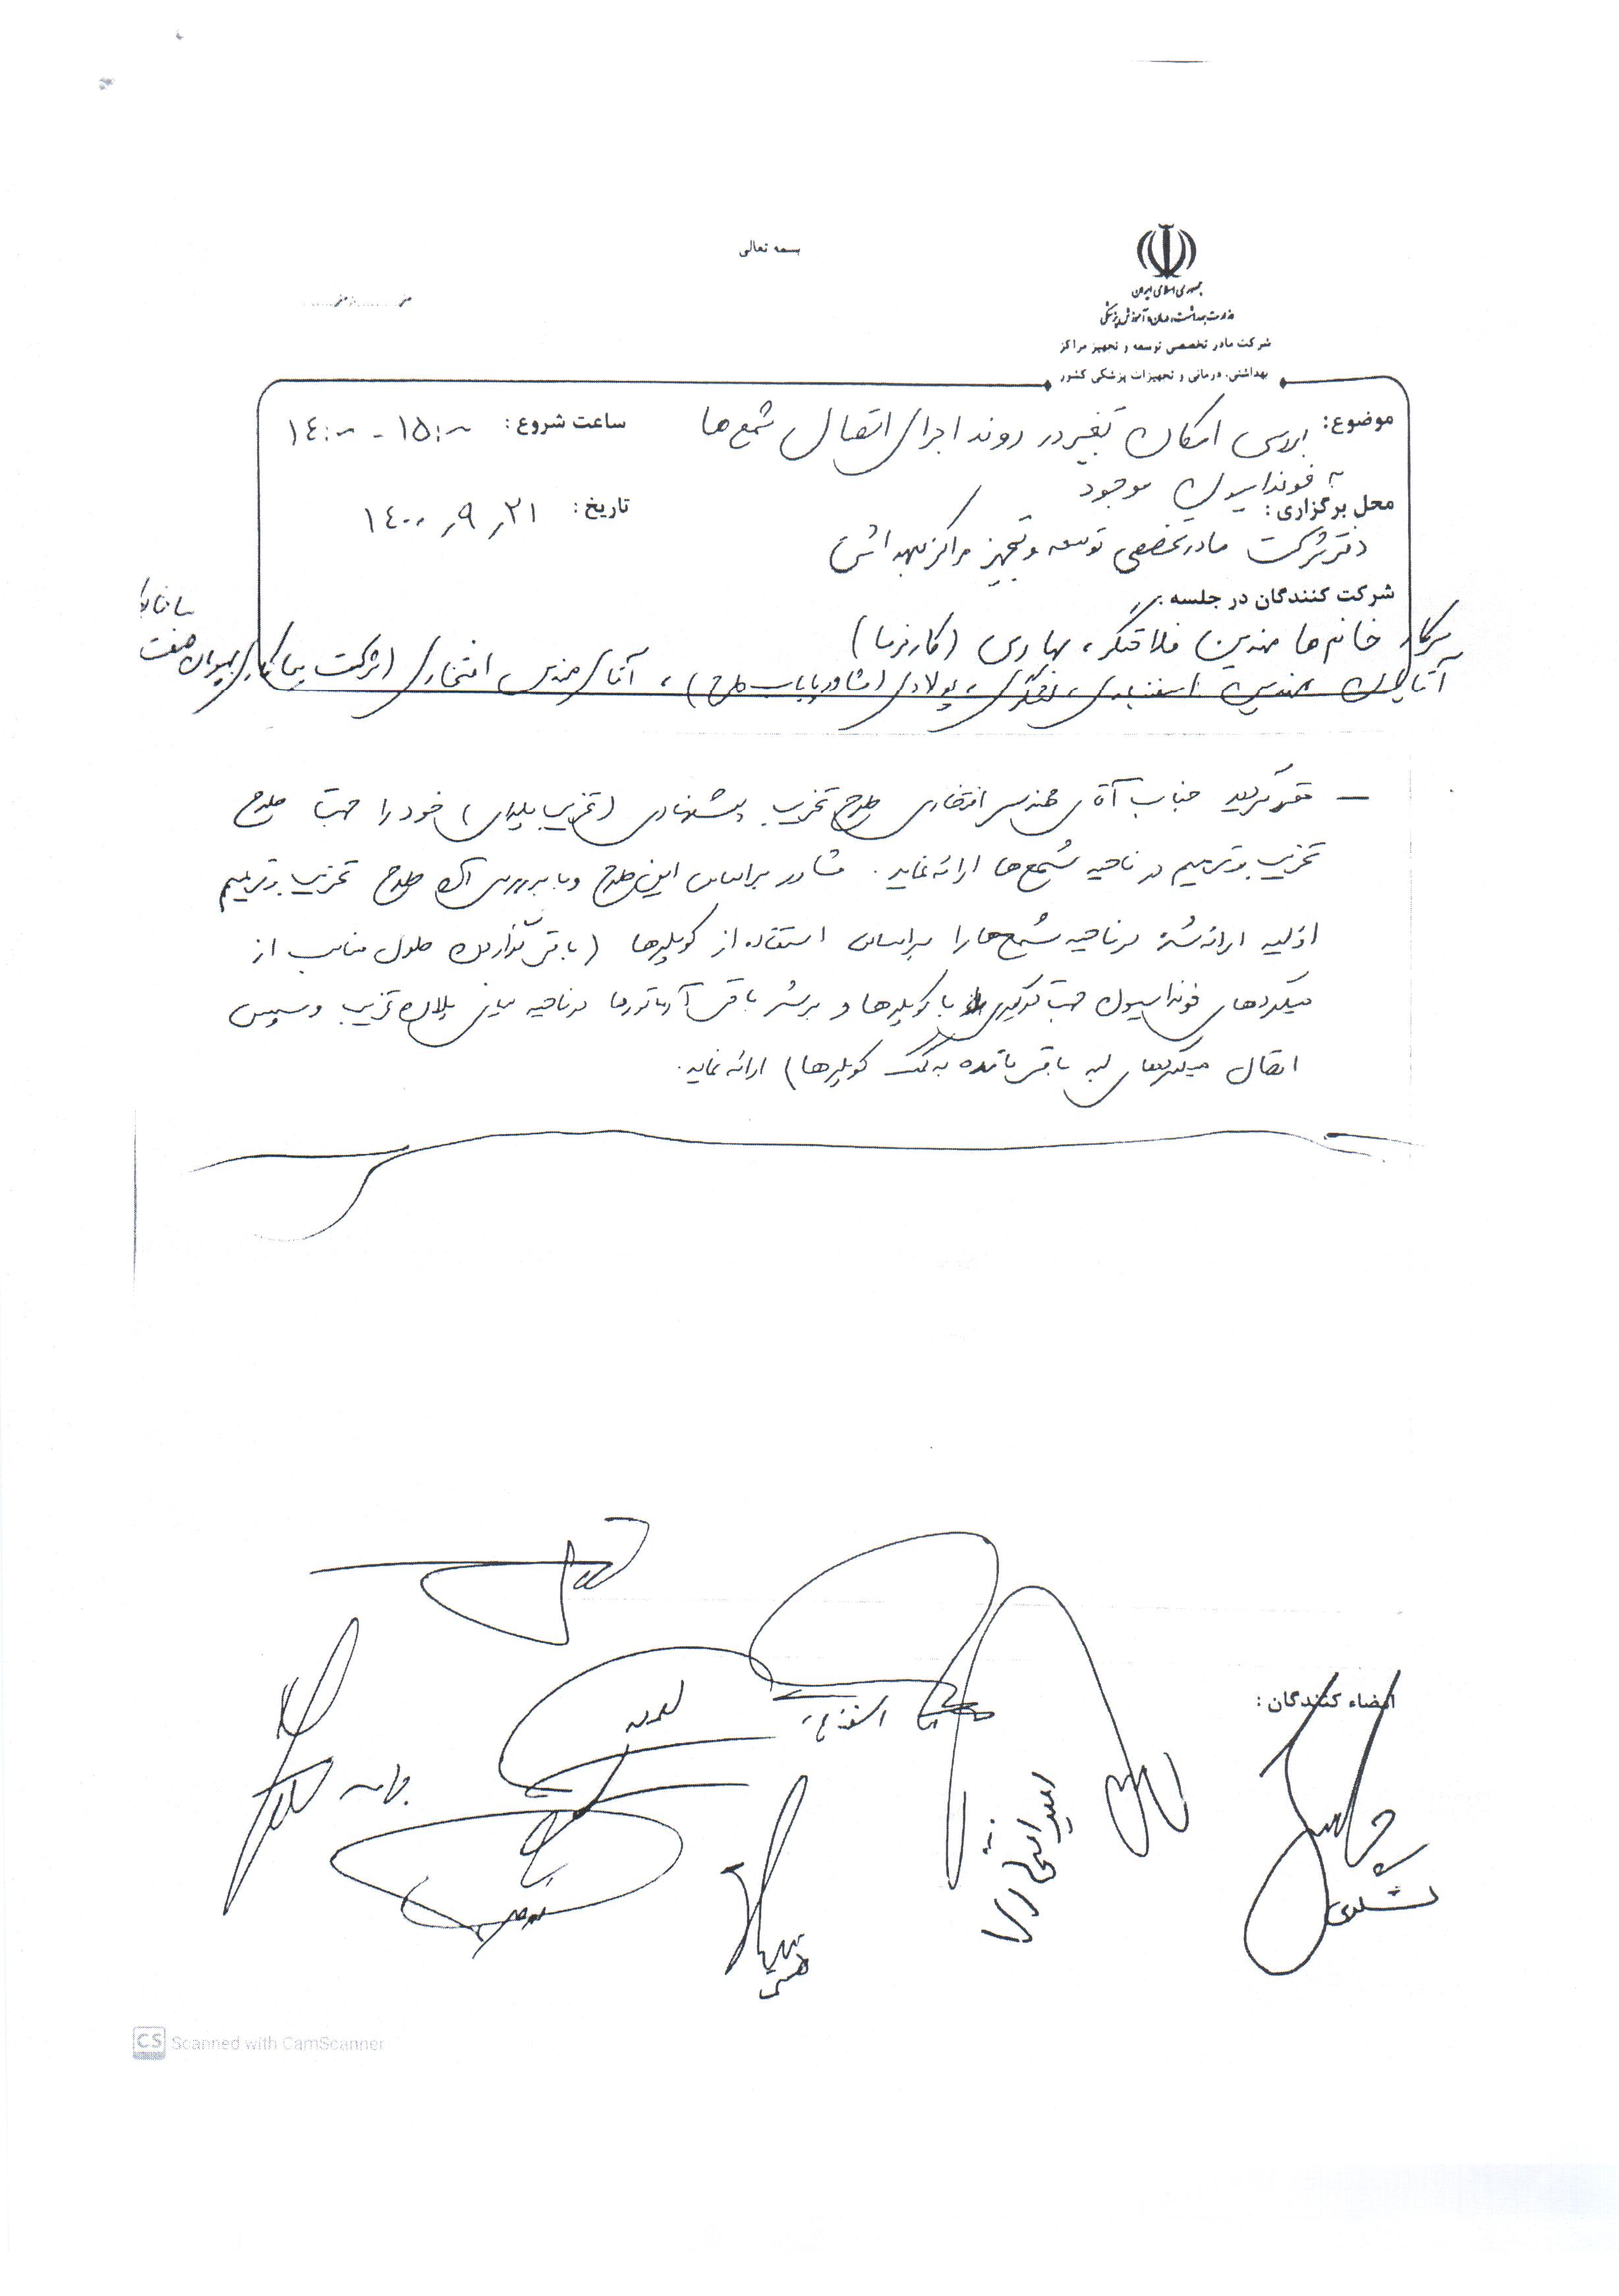 بسمه تعالی
جمهوری اسلامی ایران
وزارت بهداشت، درمان و آموزش پزشکی
شرکت مادر تخصصی توسعه و تجهیز مراکز
بهداشتی، درمانی و تجهیزات پزشکی کشور
موضوع: بررسی امکان تغییر در روند اجرای اتصال شمع ها
به فونداسیون موجود
ساعت شروع: ۱۴:۰۰ - ۱۵:۰۰
محل برگزاری:
تاریخ: ۲۱ ر ۹ ر ۱۴۰۰
دفتر شرکت مادر تخصصی توسعه و تجهیز مراکز بهداشتی
شرکت کنندگان در جلسه:
سرکار خانم ها مهندسین فلاحتگر، بهاری (کارفرما)
آقایان مهندسین اسفندیاری، پولادی (مشاور)، آقای مهندس افتخاری (شرکت
— مقرر گردید جناب آقای مهندس افتخاری طرح تخریب پیشنهادی (تخریب پله‌ای) خود را جهت طرح
تخریب و ترمیم در ناحیه شمع ها ارائه نماید. مشاور براساس این طرح و با بررسی آن طرح تخریب و ترمیم
اولیه ارائه شده در ناحیه شمع ها را براساس استفاده از کوپلرها (باقی گذاردن طول مناسب از
میلگردهای فونداسیون جهت درگیری با کوپلرها و برش باقی آرماتورها در ناحیه میانی پلان تخریب و سپس
اتصال میلگردهای لبه باقی مانده به کمک کوپلرها) ارائه نماید.
امضاء کنندگان:
CS Scanned with CamScanner